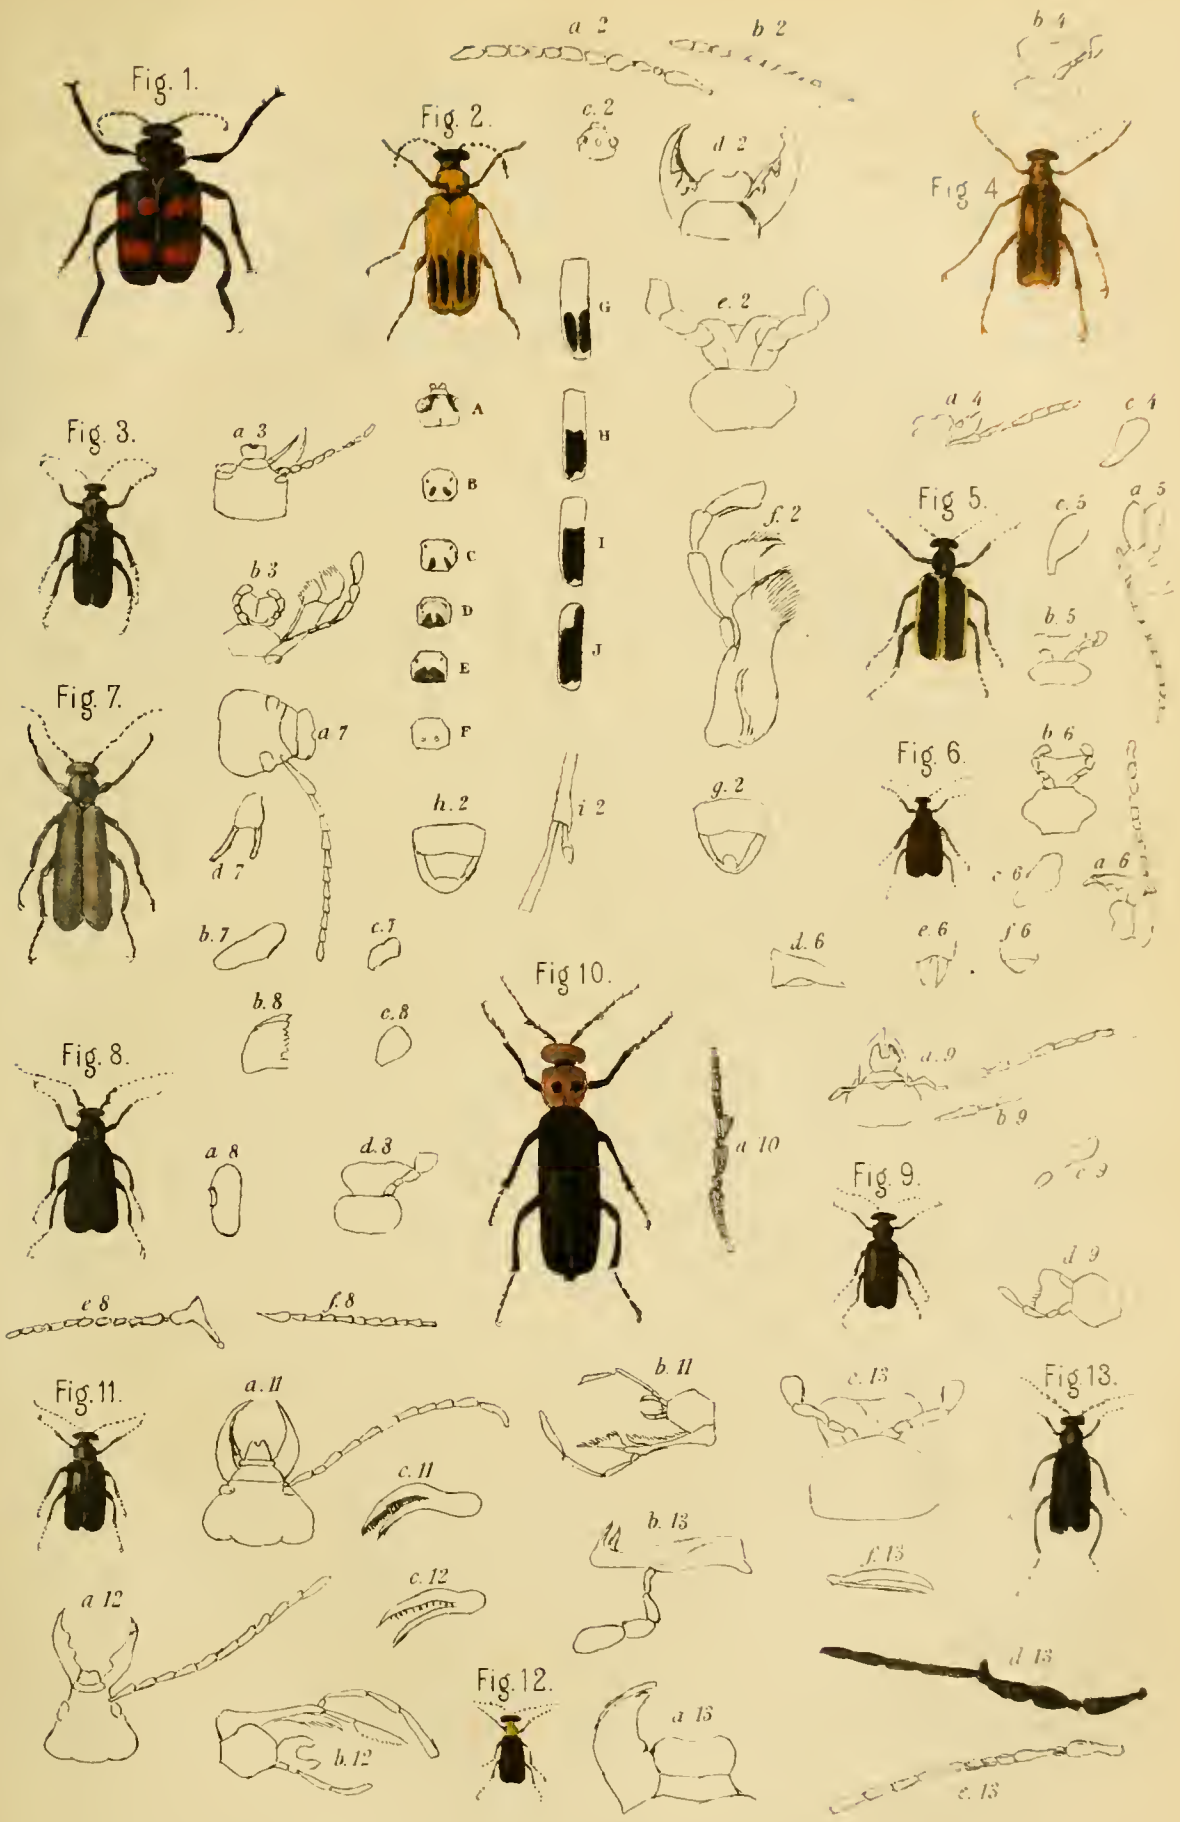 a 2
b 2
b 4
Fig. 1.
Fig. 2.
c. 2
d 2
Fig 4
G
e. 2
A
a 4
c 4
Fig. 3.
a 3
H
B
Fig 5.
c. 5
a. 5
f. 2
I
C
b 3
D
b. 5
J
E
Fig. 7.
a 7
F
Fig. 6.
b 6
h. 2
i 2
g. 2
d 7
c 6
a 6
b. 7
c. 7
d. 6
e. 6
f 6
Fig 10.
b. 8
c. 8
Fig. 8.
a. 9
b 9
a 8
d. 8
a 10
Fig. 9.
c 9
d 9
e 8
f. 8
Fig. 11.
a. 11
b. 11
c. 13
Fig. 13.
c. 11
b. 13
f. 13
a 12
c. 12
d 13
Fig. 12.
a 13
b. 12
e. 13